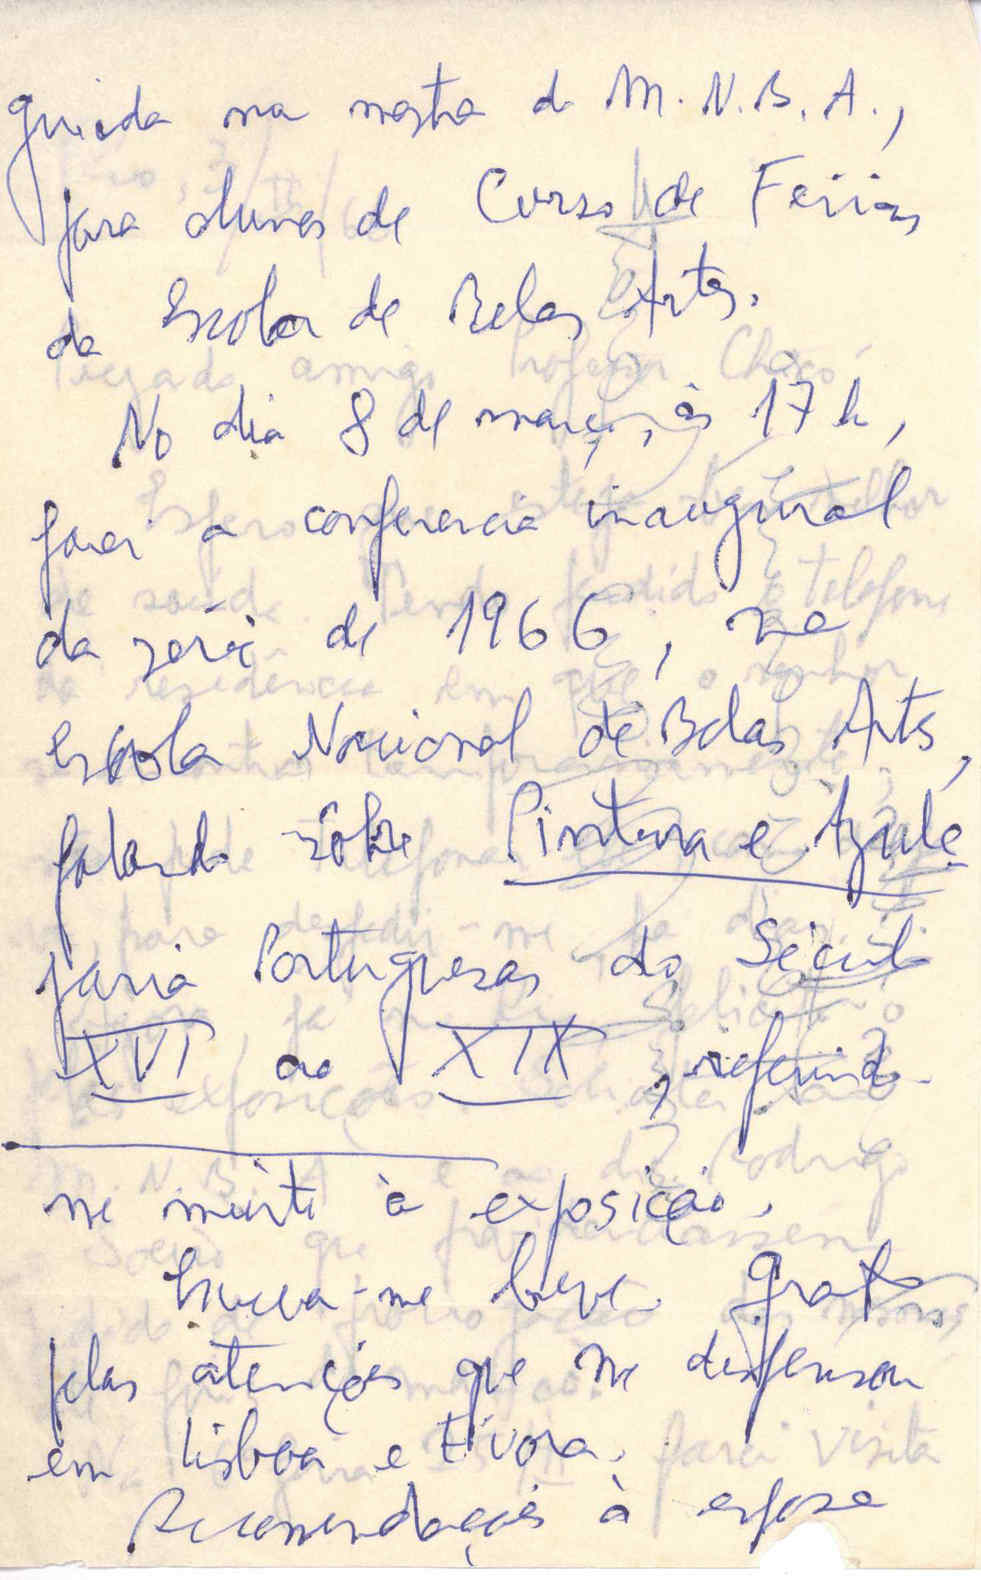 guiada na mostra do M.N.B.A.,
para alunos de Curso de Ferias
da Escola de Belas Artes.
No dia 8 de março, às 17 h,
farei a conferencia inaugural
da série de 1966, na
Escola Nacional de Belas Artes,
falando sôbre Pintura e Azule
jaria Portuguesas do Século
XVI ao XIX, referindo-
me muito à exposição.
Escreva-me breve. Grato
pelas atenções que me dispensou
em Lisboa e Évora.
Recomendações à esposa